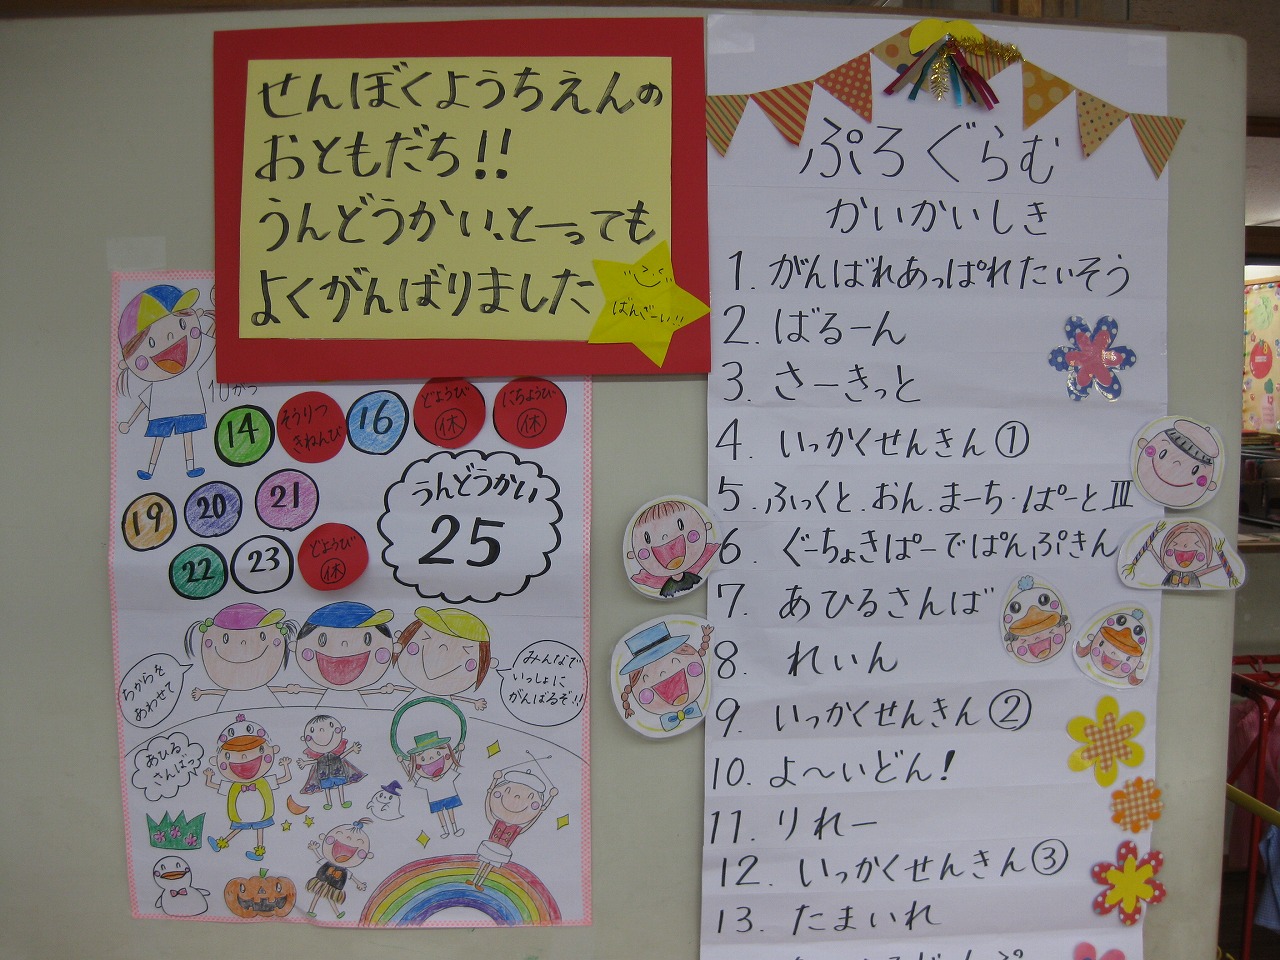 せんぼくようちえんの
おともだち!!
うんどうかい、とーっても
よくがんばりました
10がつ
14
そうりつ
きねんび
16
どようび
休
にちようび
休
19
20
21
22
23
どようび
休
うんどうかい
25
ちからを
あわせて
みんなで
いっしょに
がんばるぞ!!
あひる
さんばっ
ぷろぐらむ
かいかいしき
1. がんばれあっぱれたいそう
2. ばるーん
3. さーきっと
4. いっかくせんきん①
5. ふっくと.おん.まーち.ぱーとⅢ
6 ぐーちょきぱーでぱんぷきん
7. あひるさんば
8. れいん
9. いっかくせんきん②
10. よ〜いどん!
11. りれー
12. いっかくせんきん③
13. たまいれ